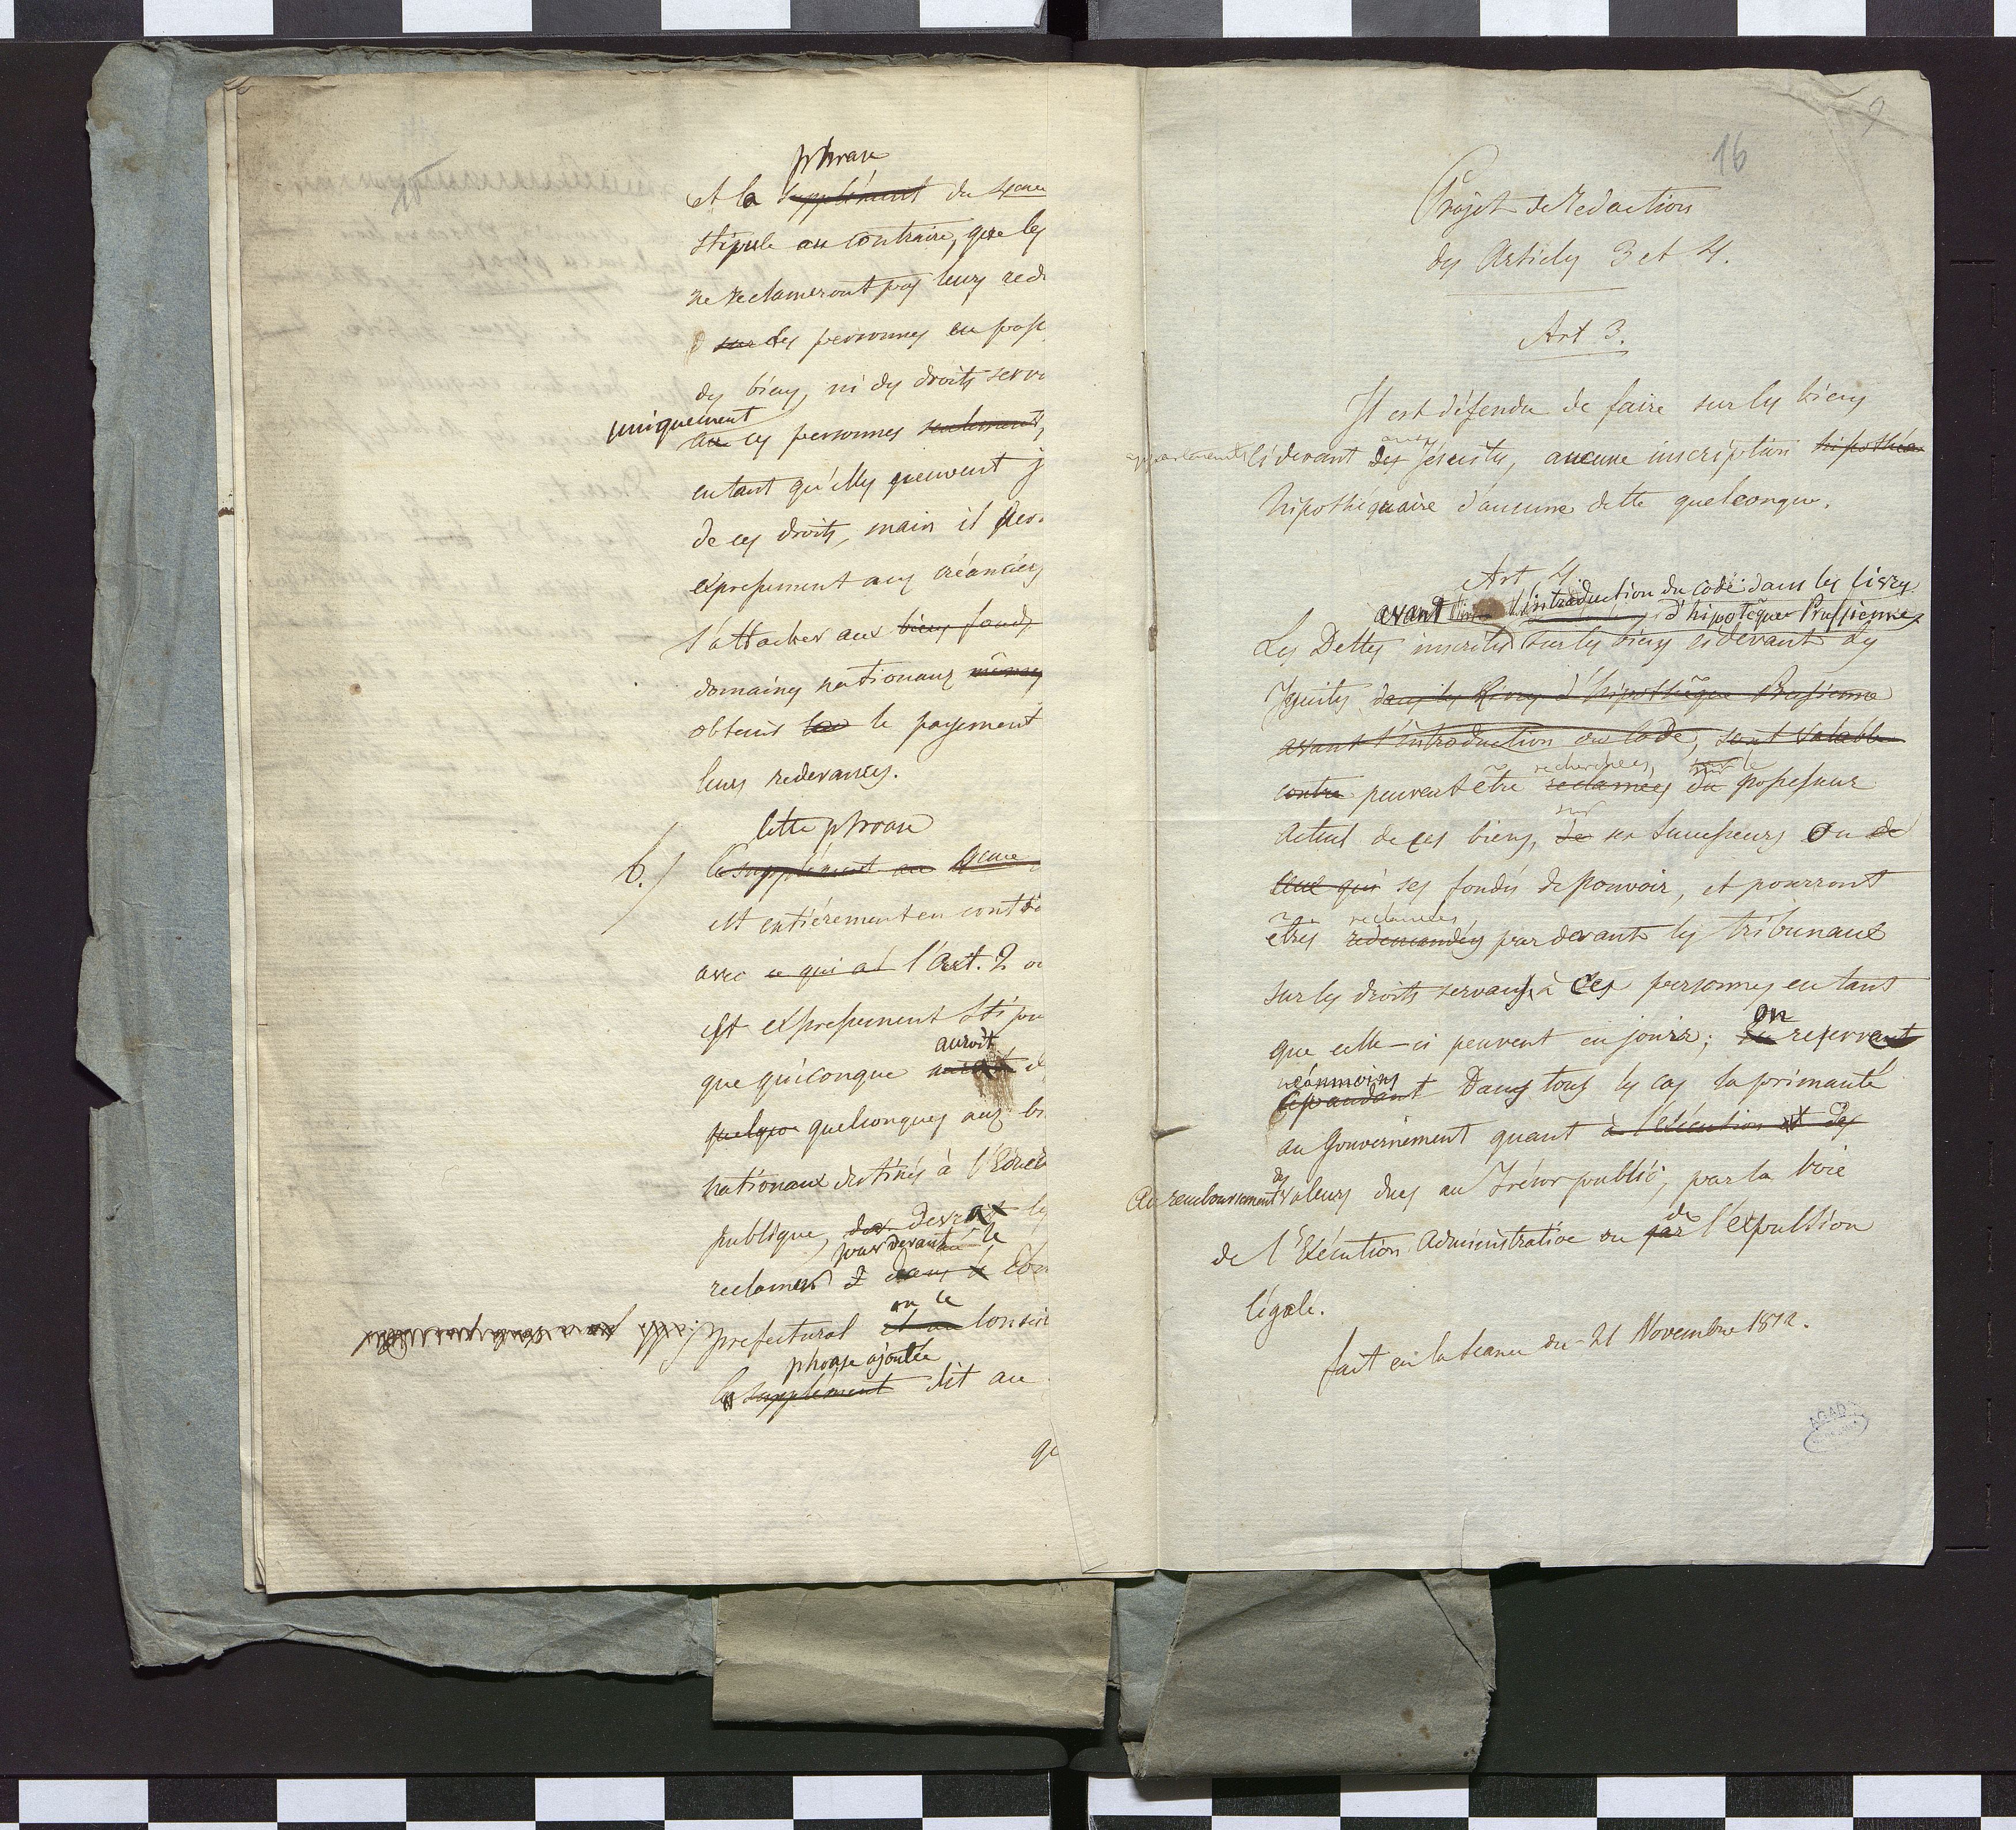 phrase
et la supplément du 4eme
stipule au contraire, que les
ne reclameront pas leurs rede
sur des personnes en poss
des biens, ni des droits serva
uniquement
au ces personnes seulement,
entant qu'elles peuvent j
de ces droits, mais il per
expressement aux créanciers
s'attacher aux biens fonds
domaines nationaux mêmes
obtenir le payement
leurs redevances.
Cette phrase
6.) le supplément au 4eme
est entiérement en contra
avec ce qui a l'Art. 2 
est expressement stipu
auroit
que quiconque d
quelque quelconques aux bi
nationaux destinés à l'Educa
publique, devra les
par devant le
reclamer Con
ou le
prefectural et au Conseil
phrase ajoutée
le supplément dit au
qu
16
9
Projet de Redaction
des Articles 3 et 4.
Art 3.
Il est défendu de faire sur les biens
appartenants cidevant des aux jesuites, aucune inscription hipothéca
hipothéquaire d'aucune dette quelconque.
Art 4
avant l'introduction du code dans les livres
d'hipotèques Prussiennes
Les Dettes inscrites sur les biens cidevant des
Jesuites dans les livres d'hipothèque Prussienne
avant l'introduction du Code, sont valable
recherchées, sur le
contre peuvent être reclamées du possesseur
sur
actuel de ces biens, de ses successeurs ou de
ceux qui ses fondés de pouvoir, et pourront
reclamées,
êtres redemandés par devant les tribunaux
sur les droits servans à ces personnes en tant
on
que celle-ci peuvent en jouir; reservant
néanmoins
cependant Dans tous les cas la primauté
au Gouvernement quant à l'exécution et des
des
au remboursement valeurs dues au Trésor public, par la voie
de
de l'Exécution Administrative ou par l'expulsion
légale.
fait en la séance du 21 Novembre 1812.
AGAD